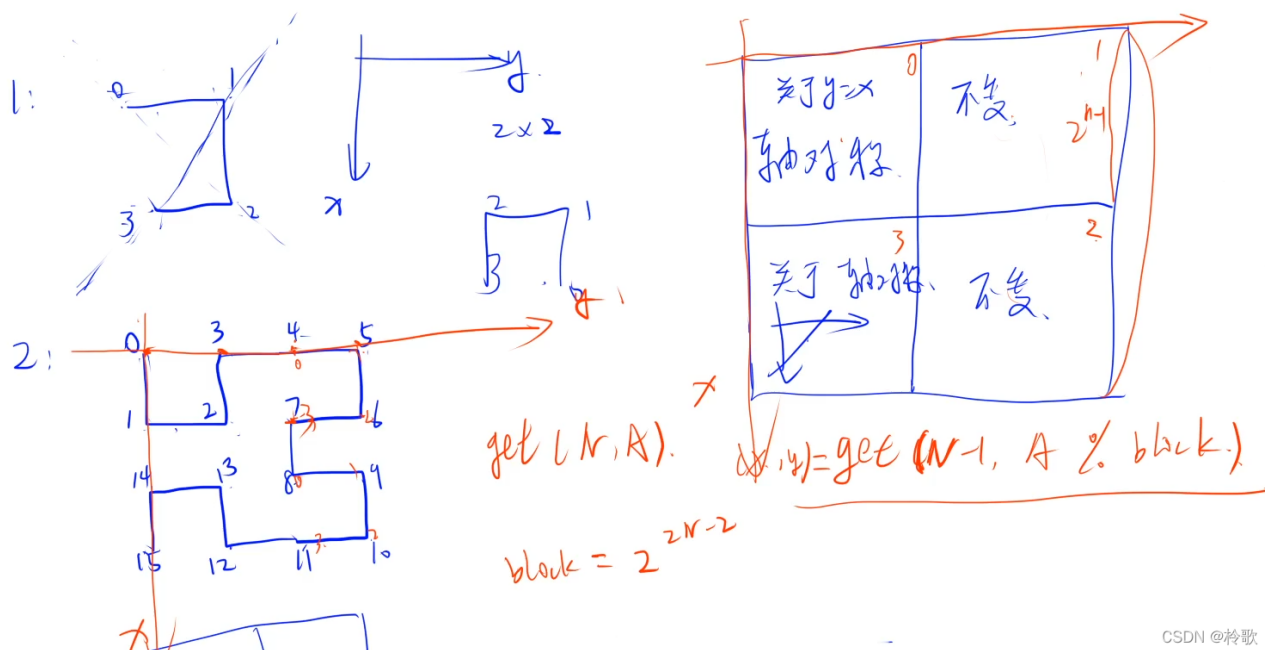 1:
0 1
3 2
y
2×2
x
2 1
3
y
2:
0 3 4 5
0
1 2 7 3 6
14 13 8 0 9
15 12 11 3 10 2
x
0 1
关于y=x
轴对称
不变
2^{n-1}
3 2
关于 轴对称
不变
x
get(N,A). (x,y)=get(N-1, A % block)
block = 2^{2N-2}
CSDN @柃歌